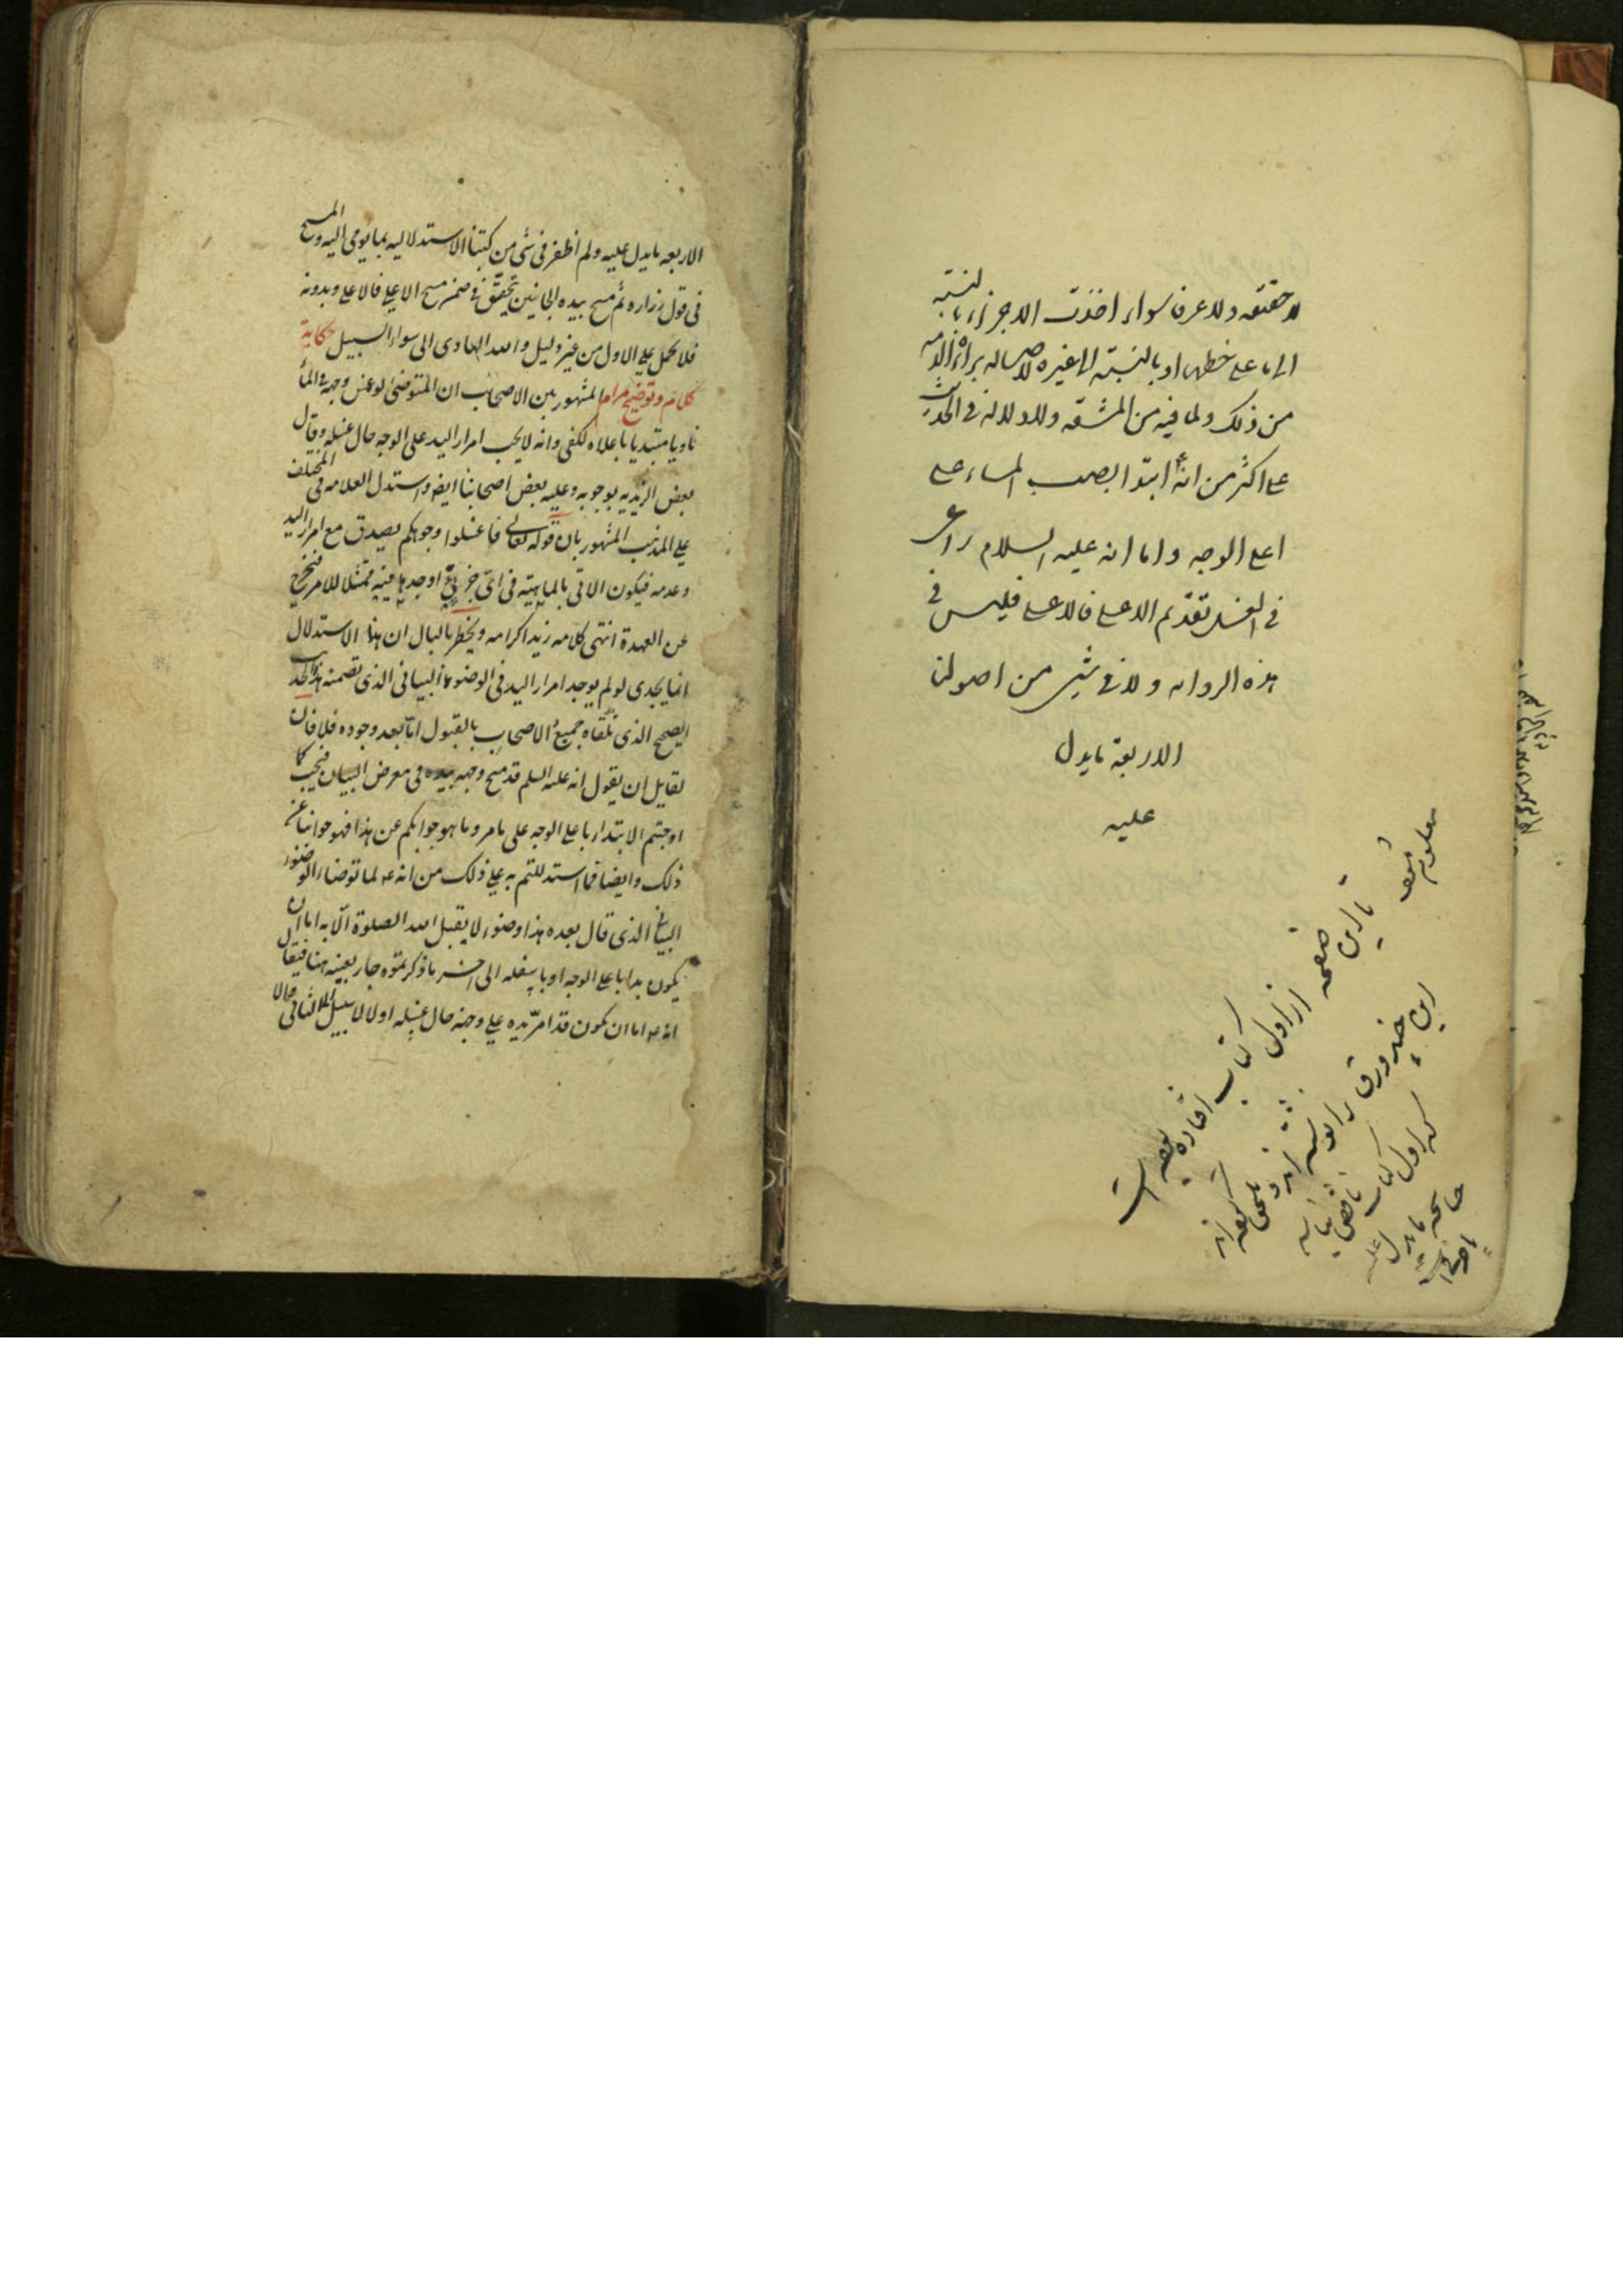 لا حقيقه ولا عرفا سواء اخذت الاجزاء بالنسبة
الى ما على خطها او بالنسبة الى غيره لاصالة براءة الذمه
من ذلك ولما فيه من المشقه ولا دلالة في الحديث
على اكثر من انه ع ابتدا بصب الماء على
اعلى الوجه واما انه عليه السلام راعى
في الغسل تقدّم الاعلى فالاعلى فليس في
هذه الرواية ولا في شيء من اصولنا
الاربعة ما يدل
عليه
معلوم شود
تا اين صفحه
از اول كتاب افتاده
است
اين چند ورق را نوشته اند و ملحق كرده اند
كه اول كتاب ناقص نباشد
ما يدل عليه
الاربعه ما يدل عليه ولم اظفر في شئ من كتبنا الاستدلاليه بما يومي اليه والمسح
في قول زراره ثم مسح بيده الجانبين يتحقق في ضمن مسح الاعلى فالاعلى وبدونه
فلا يحمل على الاول من غير دليل والله الهادي الى سواء السبيل حكاية
كلام وتوضيح مرام المشهور بين الاصحاب ان المتوضئ لو غمس وجهه في الماء
ناويا مبتديا باعلاه لكفى وانه لا يجب امرار اليد على الوجه حال غسله وقال
بعض الزيديه بوجوبه وعليه بعض اصحابنا ايضا واستدل العلامه في المختلف
على المذهب المشهور بان قوله تعالى فاغسلوا وجوهكم يصدق مع امرار اليد
وعدمه فيكون الاتي بالماهيّه في اي جزئيّ اوجدها فيه ممتثلا للامر فيخرج
عن العهدة انتهى كلامه زيد اكرامه ويخطر بالبال ان هذا الاستدلال
انما يجدى لو لم يوجد امرار اليد في الوضوء البياني الذي تضمنه هذا الحديث
الصحيح الذي تلقاه جميع الاصحاب بالقبول امّا بعد وجوده فلا فان
لقايل ان يقول انه عليه السلم قد مسح وجهه بيده في معرض البيان فيجب كما
اوجبتم الابتداء باعلى الوجه على ما مر وما هو جوابكم عن هذا فهو جوابنا عن
ذلك وايضا فما استدللتم به على ذلك من انه ع لما توضا الوضوء
البياني الذي قال بعده هذا وضوء لا يقبل الله الصلوة الّا به اما ان
يكون بدا باعلى الوجه او باسفله الى اخر ما ذكرتموه جار بعينه هنا فيقال
انه ع اما ان يكون قد امرّ يده على وجهه حال غسله او لا لا سبيل الى الثاني والا